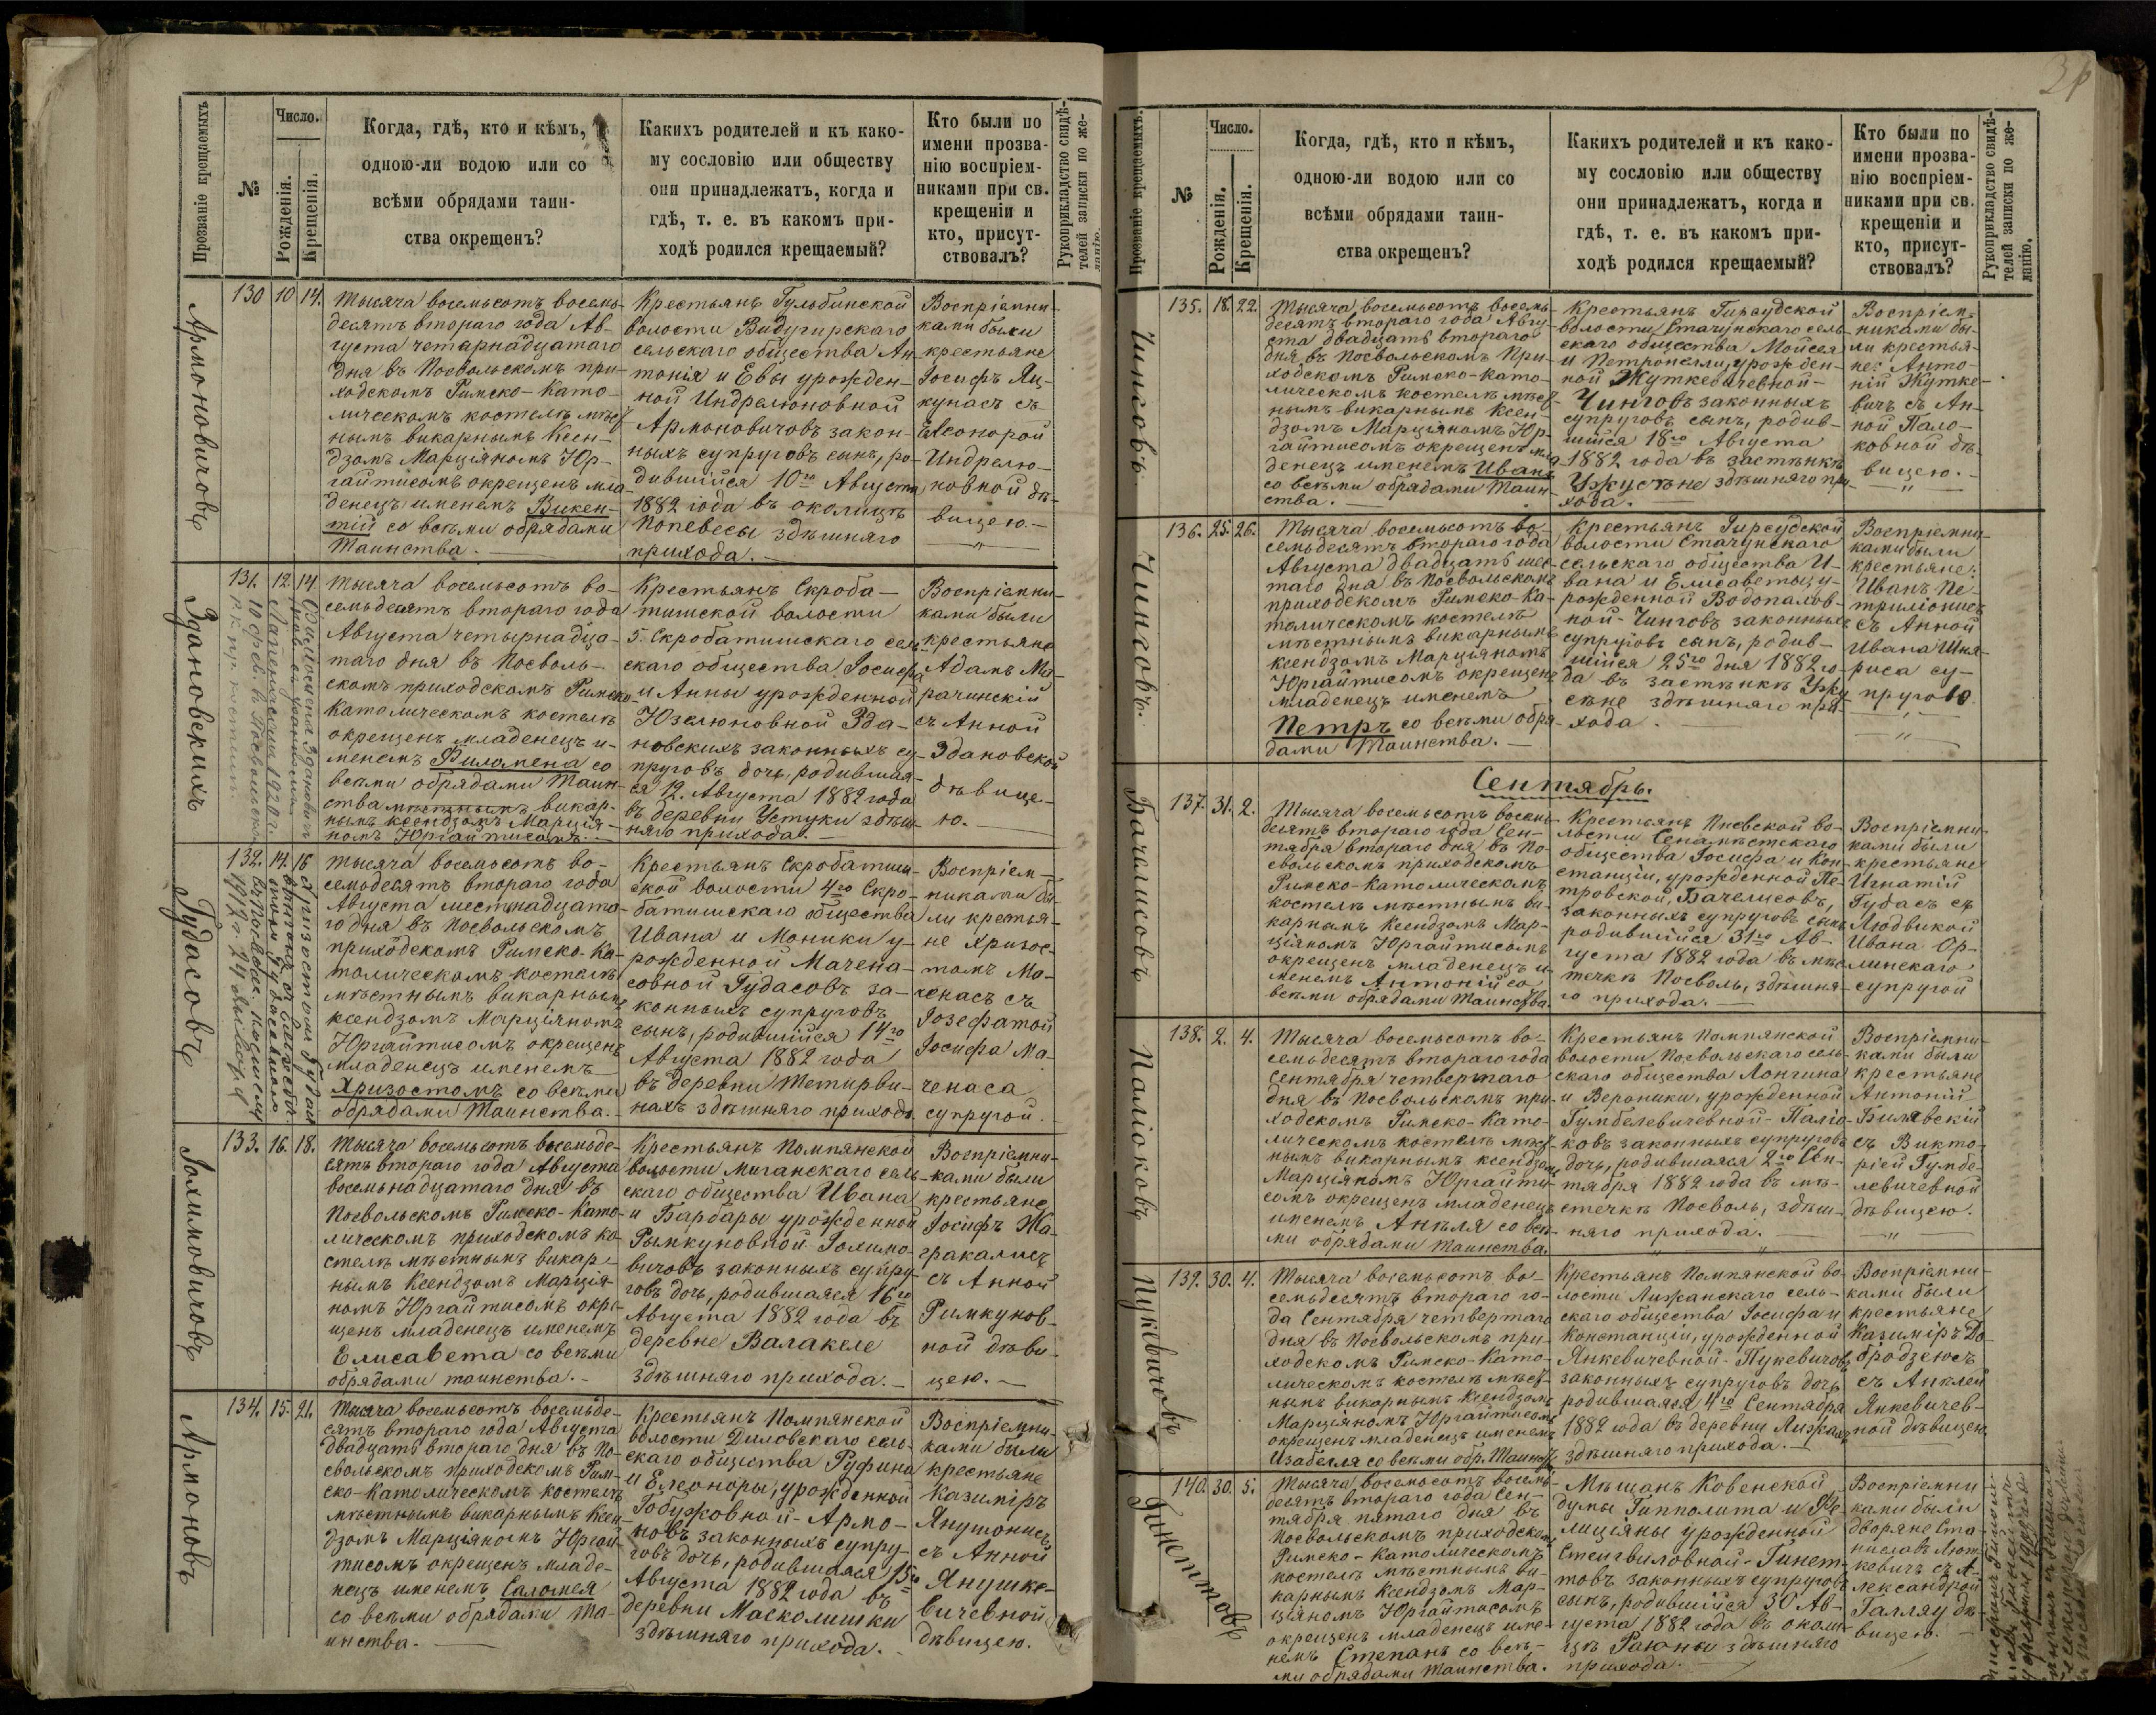 Прозваніе крещаемыхъ
№
Число.
Рожденія.
Крещенія.
Когда, гдѣ, кто и кѣмъ,
одною-ли водою или со
всѣми обрядами таин-
ства окрещенъ?
Какихъ родителей и къ како-
му сословію или обществу
они принадлежатъ, когда и
гдѣ, т. е. въ какомъ при-
ходѣ родился крещаемый?
Кто были по
имени прозва-
нію воспріем-
никами при св.
крещеніи и
кто, присут-
ствовалъ?
Рукоприкладство свидѣ-
телей записки по же-
ланію.
Армоновичовъ
130 10 14.
Тысяча восемьсотъ восемь-
десятъ втораго года Ав-
густа четарнадцатаго
дня въ Посвольскомъ при-
ходскомъ Римско-Като-
лическомъ костелѣ мѣст-
нымъ викарнымъ Ксен-
дзомъ Марціяномъ Юр-
гайтисомъ окрещенъ мла-
денецъ именемъ Викен-
тій со всѣми обрядами
Таинства.
Крестьянъ Гульбинской
волости Видугирскаго
сельскаго общества Ан-
тонія и Евы урожден-
ной Индрелюновной
Армоновичовъ закон-
ныхъ супруговъ сынъ, ро-
дившійся 10го Августа
1882 года въ околицѣ
Попевесы здѣшняго
прихода.
Воспріемни-
ками были
крестьяне
Іосифъ Яц-
кунасъ съ
Елеонорой
Индрелю-
новной дѣ-
вицею.
Здановскихъ
131. 12. 14.
Тысяча восемьсотъ во-
семьдесятъ втораго года
Августа четырнадца-
таго дня въ Посволь-
скомъ приходскомъ Римско-
Католическомъ костелѣ
окрещенъ младенецъ и-
менемъ Филомена со
всѣми обрядами Таин-
ства мѣстнымъ викар-
нымъ Ксендзомъ Марція-
номъ Юргайтисомъ.
Крестьянъ Скроба-
тишской волости
5. Скробатишскаго сель-
скаго общества Іосифа
и Анны урожденной
Юзелюновной Зда-
новскихъ законныхъ су-
пруговъ дочь, родившая-
ся 12. Августа 1882 года
въ деревни Устуки здѣш-
няго прихода.
Воспріемни-
ками были
крестьяне
Адамъ Ма-
рачинскій
съ Анной
Здановской
дѣвице-
ю.
Гудасовъ
132. 14. 16
Тысяча восемьсотъ во-
семьдесятъ втораго года
Августа шестнадцата-
го дня въ Посвольскомъ
приходскомъ Римско-Ка-
толическомъ костелѣ
мѣстнымъ викарнымъ
ксендзомъ Марціяномъ
Юргайтисомъ окрещенъ
младенецъ именемъ
Хризостомъ со всѣми
обрядами Таинства.
Крестьянъ Скробатиш-
ской волости 4го Скро-
батишскаго общества
Ивана и Моники у-
рожденной Мачена-
совной Гудасовъ за-
конныхъ супруговъ
сынъ, родившійся 14го
Августа 1882 года
въ деревни Тетирви-
нахъ здѣшняго прихода.
Воспріем-
никами бы-
ли крестья-
не Хризос-
томъ Ма-
ченасъ съ
Іозефатой
Іосифа Ма-
ченаса
супругой.
Іохимовичовъ
133. 16. 18.
Тысяча восемьсотъ восемьде-
сятъ втораго года Августа
восемьнадцатаго дня въ
Посвольскомъ Римско-Като-
лическомъ приходскомъ ко-
стелѣ мѣстнымъ викар-
нымъ Ксендзомъ Марція-
номъ Юргайтисомъ окре-
щенъ младенецъ именемъ
Елисавета со всѣми
обрядами таинства.
Крестьянъ Помпянской
волости Миганскаго сель-
скаго общества Ивана
и Барбары урожденной
Рымкуновной-Іохимо-
вичовъ законныхъ супру-
говъ дочь, родившаяся 16го
Августа 1882 года въ
деревне Валакеле
здѣшняго прихода.
Воспріемни-
ками были
крестьяне
Іосифъ Жа-
гракалисъ
съ Анной
Римкунов-
ной дѣви-
цею.
Армоновъ
134. 15. 21.
Тысяча восемьсотъ восемьде-
сятъ втораго года Августа
двадцать втораго дня въ По-
свольскомъ приходскомъ Рим-
ско-Католическомъ костелѣ
мѣстнымъ викарнымъ Ксен-
дзомъ Марціяномъ Юргай-
тисомъ окрещенъ младе-
нецъ именемъ Саломея
со всѣми обрядами Та-
инства.
Крестьянъ Помпянской
волости Диловскаго сель-
скаго общества Руфина
и Елеоноры, урожденной
Гобужовной-Армо-
новъ законныхъ супру-
говъ дочь, родившаяся 15го
Августа 1882 года въ
деревни Масколишки
здѣшняго прихода.
Воспріемни-
ками были
крестьяне
Казиміръ
Янушонисъ
съ Анной
Янушке-
вичевной,
дѣвицею.
Прозваніе крещаемыхъ.
№
Число.
Рожденія.
Крещенія.
Когда, гдѣ, кто и кѣмъ,
одною-ли водою или со
всѣми обрядами таин-
ства окрещенъ?
Какихъ родителей и къ како-
му сословію или обществу
они принадлежатъ, когда и
гдѣ, т. е. въ какомъ при-
ходѣ родился крещаемый?
Кто были по
имени прозва-
нію воспріем-
никами при св.
крещеніи и
кто, присут-
ствовалъ?
Рукоприкладство свидѣ-
телей записки по же-
ланію.
Чинговъ
135. 18. 22.
Тысяча восемьсотъ восемь-
десятъ втораго года Авгу-
ста двадцать втораго
дня въ Посвольскомъ При-
ходскомъ Римско-като-
лическомъ костелѣ мѣст-
нымъ викарнымъ Ксен-
дзомъ Марціяномъ Юр-
гайтисомъ окрещенъ мла-
денецъ именемъ Иванъ
со всѣми обрядами Таин-
ства.
Крестьянъ Гирсудской
волости Стачунскаго сель-
скаго общества Мойсея
и Петронелли, урожден-
ной Жуткевичевной-
Чинговъ законныхъ
супруговъ сынъ, родив-
шійся 18го Августа
1882 года въ застѣнкѣ
Ужусѣне здѣшняго при-
хода.
Воспріем-
никами бы-
ли крестья-
не: Анто-
ній Жутке-
вичъ съ Ан-
ной Пало-
ковной дѣ-
вицею.
Чинговъ.
136. 25. 26.
Тысяча восемьсотъ во-
семьдесятъ втораго года
Августа двадцать шес-
таго дня въ Посвольскомъ
приходскомъ Римско-Ка-
толическомъ костелѣ
мѣстнымъ викарнымъ
ксендзомъ Марціяномъ
Юргайтисомъ окрещенъ
младенецъ именемъ
Петръ со всѣми обря-
дами Таинства.
Крестьянъ Гирсудской
волости Стачунскаго
сельскаго общества И-
вана и Елисаветы, у-
рожденной Водопалов-
ной-Чинговъ законныхъ
супруговъ сынъ, родив-
шійся 25го дня 1882 го-
да въ застѣнкѣ Ужу-
сѣне здѣшняго при-
хода.
Воспріемни-
ками были
крестьяне:
Иванъ Пе-
триліонисъ
съ Анной
Ивана Шня-
риса су-
пругою.
Сентябрь.
Бачалисовъ
137. 31. 2.
Тысяча восемьсотъ восемь-
десятъ втораго года Сен-
тября втораго дня въ По-
свольскомъ приходскомъ
Римско-Католическомъ
костелѣ мѣстнымъ ви-
карнымъ Ксендзомъ Мар-
ціяномъ Юргайтисомъ
окрещенъ младенецъ и-
менемъ Антоній со
всѣми обрядами Таинства.
Крестьянъ Пнѣвской во-
лости Сенамѣстскаго
общества Іосифа и Кон-
станціи, урожденной Пе-
тровской, Бачелисовъ,
законныхъ супруговъ сынъ
родившійся 31го Ав-
густа 1882 года въ мѣс-
течкѣ Посволь, здѣшня-
го прихода.
Воспріемни-
ками были
крестьяне
Игнатій
Гудасъ съ
Людвикой
Ивана Ор-
линскаго
супругой
Паліоковъ
138. 2. 4.
Тысяча восемьсотъ во-
семьдесятъ втораго года
Сентября четвертаго
дня въ Посвольскомъ при-
ходскомъ Римско-Като-
лическомъ костелѣ мѣст-
нымъ викарнымъ ксендзомъ
Марціяномъ Юргайти-
сомъ окрещенъ младенецъ
именемъ Анѣля со всѣ-
ми обрядами Таинства.
Крестьянъ Помпянской
волости Посвольскаго сель-
скаго общества Лонгина
и Вероники, урожденной
Гумбелевичевной-Паліо-
ковъ законныхъ супруговъ
дочь, родившаяся 2го Сен-
тября 1882 года въ мѣ-
стечкѣ Посволь, здѣш-
няго прихода.
Воспріемни-
ками были
крестьяне
Антоній
Билявскій
съ Викто-
ріей Гумбе-
левичевной
дѣвицею.
Пукевичовъ
139. 30. 4.
Тысяча восемьсотъ во-
семьдесятъ втораго го-
да Сентября четвертаго
дня въ Посвольскомъ при-
ходскомъ Римско-Като-
лическомъ костелѣ мѣст-
нымъ викарнымъ Ксендзомъ
Марціяномъ Юргайтисомъ
окрещенъ младенецъ именемъ
Изабелла со всѣми обр. Таинст.
Крестьянъ Помпянской во-
лости Лижанскаго сель-
скаго общества Іосифа и
Констанціи, урожденной
Янкевичевной-Пукевичовъ
законныхъ супруговъ дочь
родившаяся 4го Сентября
1882 года въ деревни Лижахъ
здѣшняго прихода.
Воспріемни-
ками были
крестьяне
Казиміръ До-
бродзеюсъ
съ Анѣлей
Янкевичев-
ной дѣвицею
Гинеттовъ
140. 30. 5.
Тысяча восемьсотъ восемь-
десятъ втораго года Сен-
тября пятаго дня въ
Посвольскомъ приходскомъ
Римско-Католическомъ
костелѣ мѣстнымъ ви-
карнымъ Ксендзомъ Мар-
ціяномъ Юргайтисомъ
окрещенъ младенецъ име-
немъ Степанъ со всѣ-
ми обрядами Таинства.
Мѣщанъ Ковенской
думы Гипполита и Фе-
лиціяны урожденной
Стеигвиловной-Гинет-
товъ законныхъ супруговъ
сынъ, родившійся 30 Ав-
густа 1882 года въ околи-
цѣ Раюны здѣшняго
прихода.
Воспріемни
ками были
дворяне Ста-
ниславъ Лют-
кевичъ съ А-
лександрой
Галляу дѣ-
вицею.